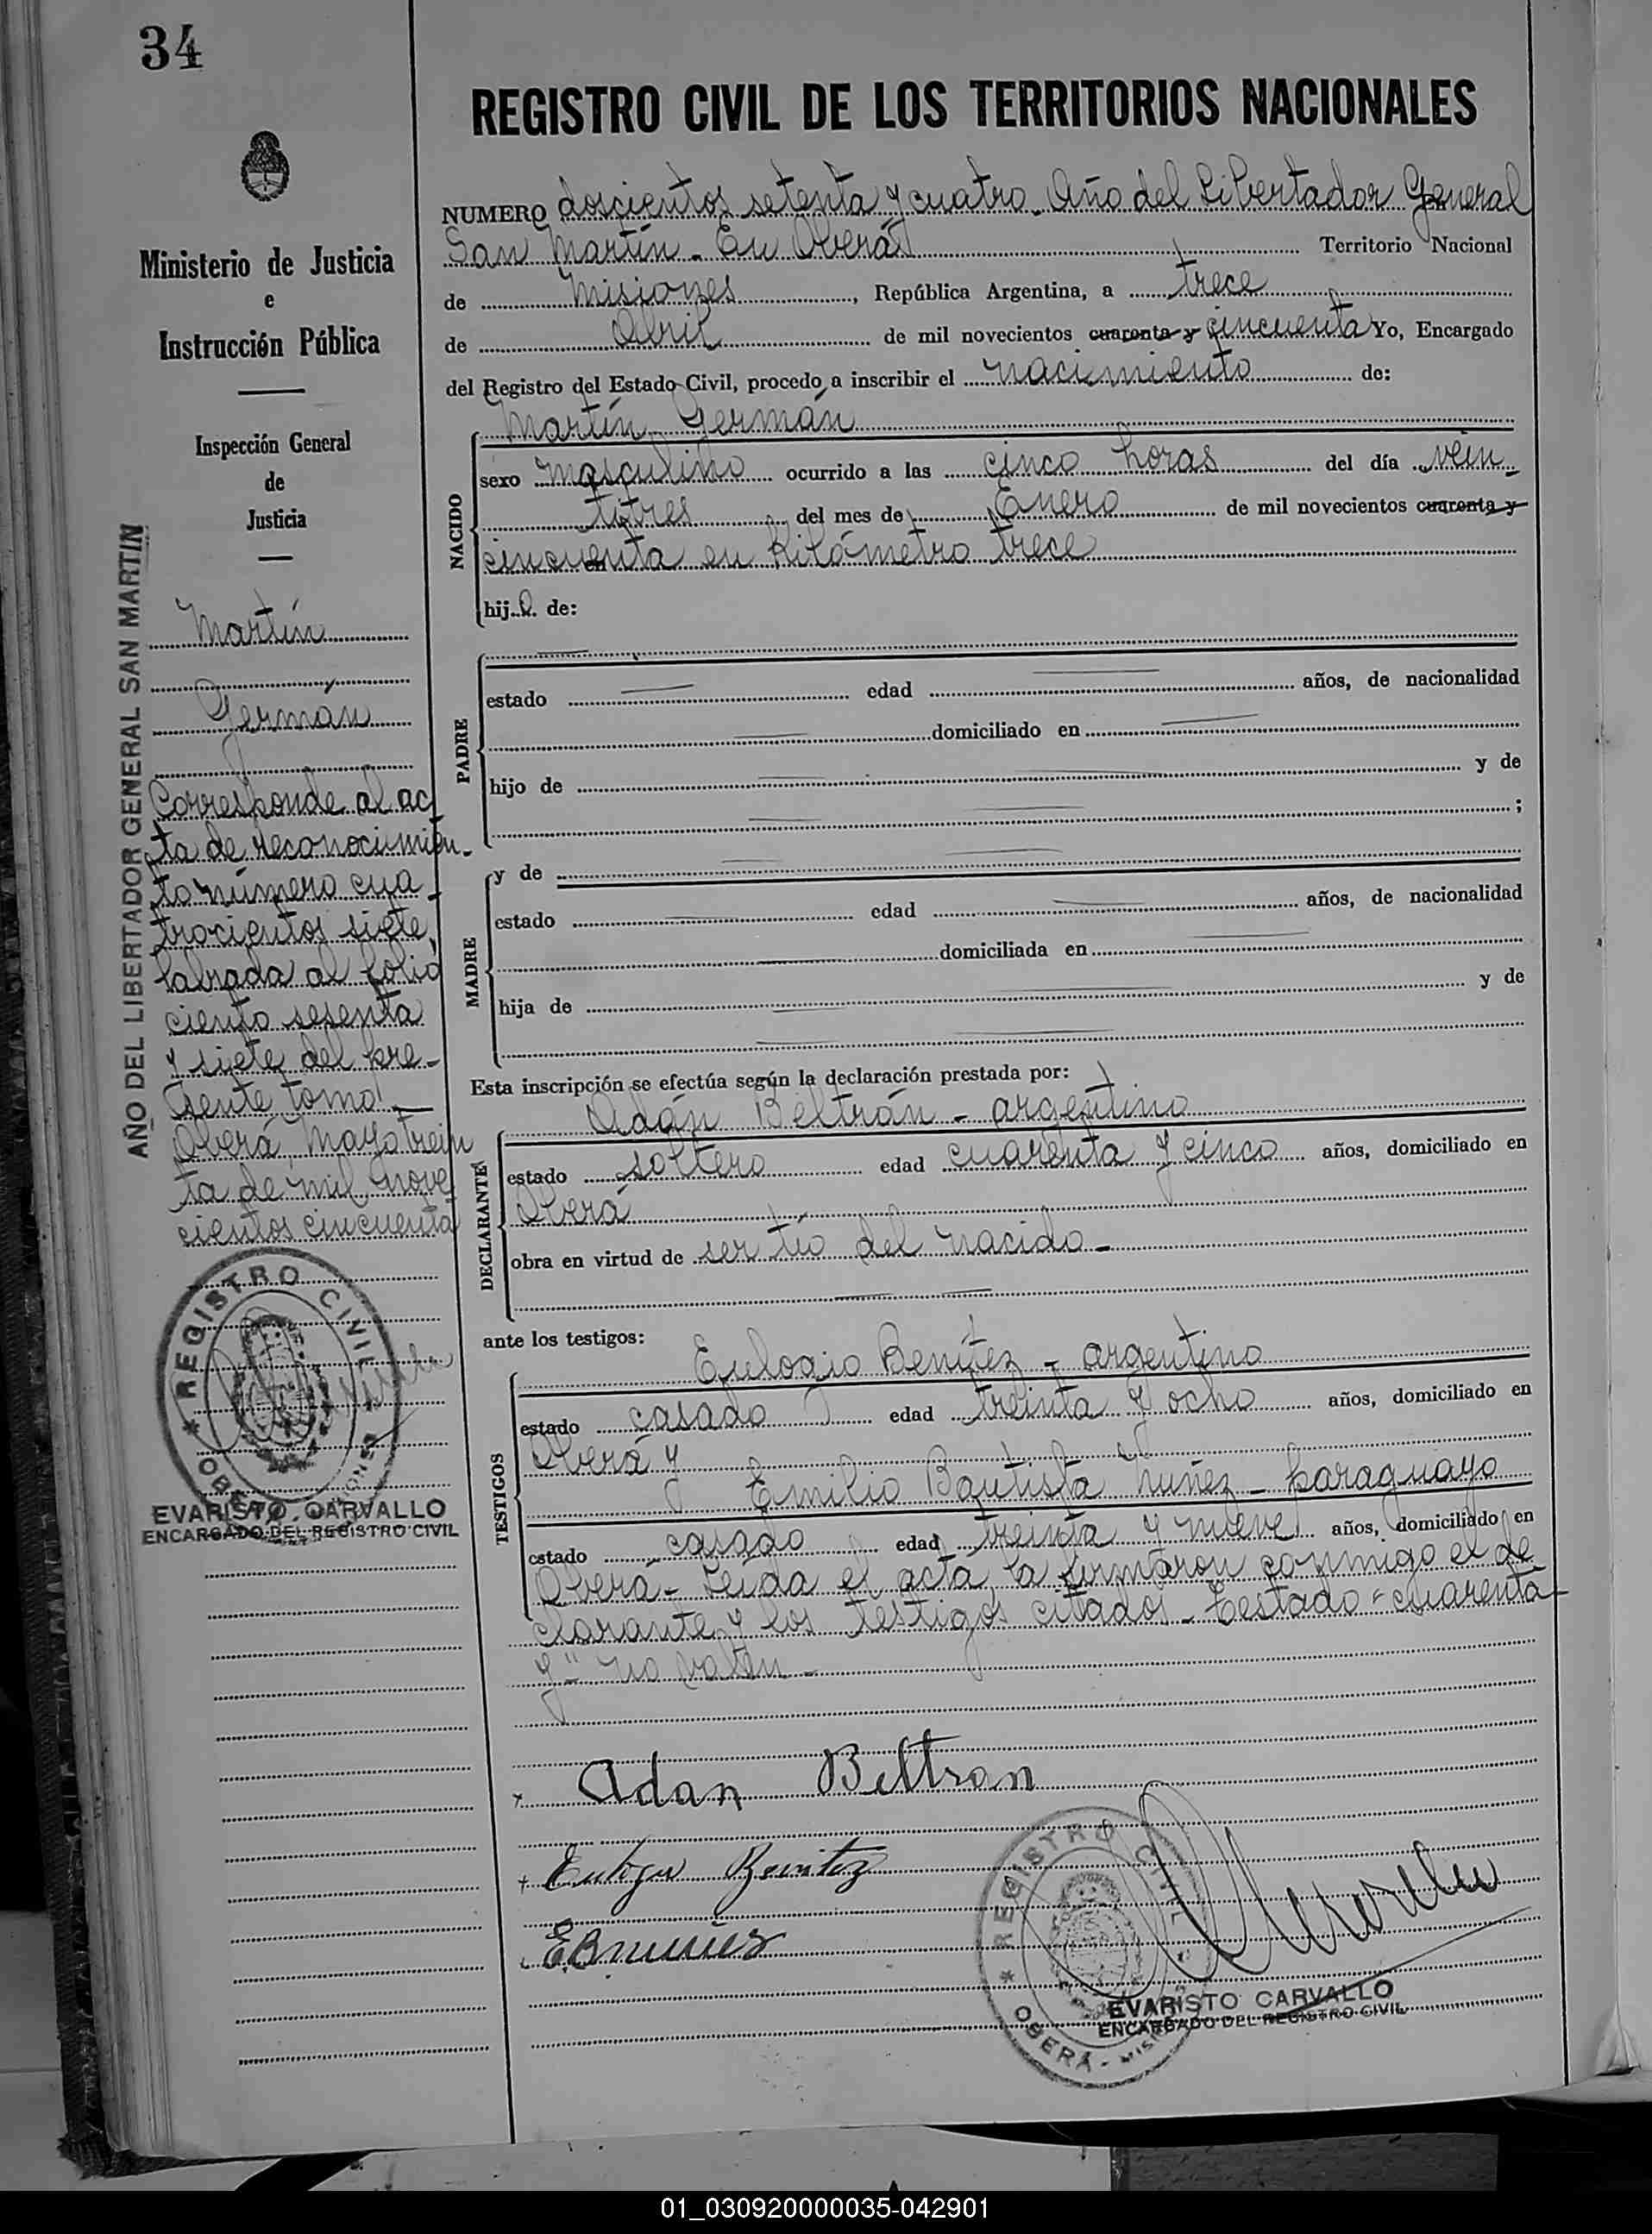 34
REGISTRO CIVIL DE LOS TERRITORIOS NACIONALES
Ministerio de Justicia
e
Instrucción Pública
Inspección General
de
Justicia
AÑO DEL LIBERTADOR GENERAL SAN MARTIN
Martín
Germán
Corresponde al ac
ta de reconocimien-
to número cua
trocientos siete,
labrada al folio
ciento sesenta
y siete del pre-
sente tomo
Oberá, Mayo trein
ta de mil nove
cientos cincuenta
REGISTRO CIVIL
OBERÁ MISIONES
EVARISTO CARVALLO
ENCARGADO DEL REGISTRO CIVIL
NUMERO doscientos setenta y cuatro. Año del Libertador General
San Martín - En Oberá Territorio Nacional
de Misiones, República Argentina, a trece
de Abril de mil novecientos cuarenta y cincuenta Yo, Encargado
del Registro del Estado Civil, procedo a inscribir el nacimiento de:
Martín Germán
NACIDO
sexo masculino ocurrido a las cinco horas del día vein-
titres del mes de Enero de mil novecientos cuarenta y
cincuenta en Kilómetro trece
hijo de:
PADRE
estado edad años, de nacionalidad
domiciliado en
hijo de y de
;
MADRE
y de
estado edad años, de nacionalidad
domiciliada en
hija de y de
Esta inscripción se efectúa según la declaración prestada por:
Adán Beltrán - argentino
DECLARANTE
estado soltero edad cuarenta y cinco años, domiciliado en
Oberá
obra en virtud de ser tío del nacido -
ante los testigos:
Eulogio Benítez - argentino
TESTIGOS
estado casado edad treinta y ocho años, domiciliado en
Oberá y
Emilio Bautista Nuñez - paraguayo
estado casado edad treinta y nueve años, domiciliado en
Oberá - Leída el acta, la firmaron conmigo el de
clarante y los testigos citados - Testado "cuarenta
y" no valen -
Adan Beltran
Eulogio Benitez
EBnuñez
REGISTRO CIVIL
OBERÁ - MISIONES
EVARISTO CARVALLO
ENCARGADO DEL REGISTRO CIVIL
01_030920000035-042901